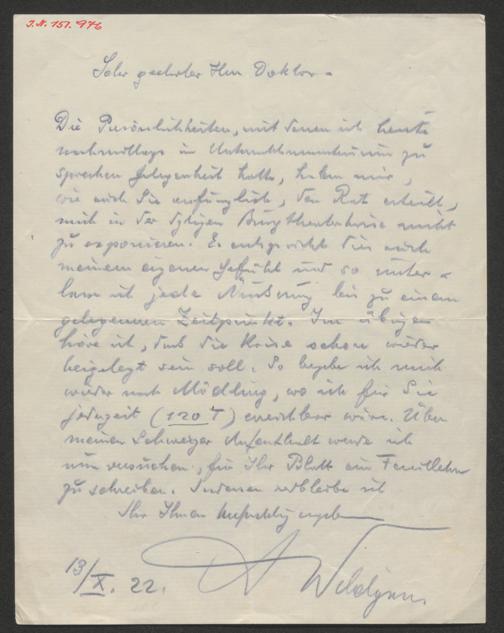 J.N. 151.976
Sehr geehrter Herr Doktor –
Die Persönlichkeiten, mit denen ich heute
nachmittags im Unterrichtsministerium zu
sprechen Gelegenheit hatte, haben mir,
wie auch Sie anfänglich, den Rat erteilt,
mich in der Burgtheaterkrise nicht
zu exponieren. Es entspricht dies auch
meinem eigenen Gefühl und so unter-
lasse ich jede Äußerung bis zu einem
gelegenen Zeitpunkt. Im übrigen
höre ich, daß die Krise schon wieder
beigelegt sein soll. So begebe ich mich
wieder nach Mödling, wo ich für Sie
jederzeit (120 T) erreichbar wäre. Über
meinen Schweizer Aufenthalt werde ich
nun versuchen, für Ihr Blatt ein Feuilleton
zu schreiben. Indessen verbleibe ich
Ihr Ihnen
A Wildgans.
13/X. 22.